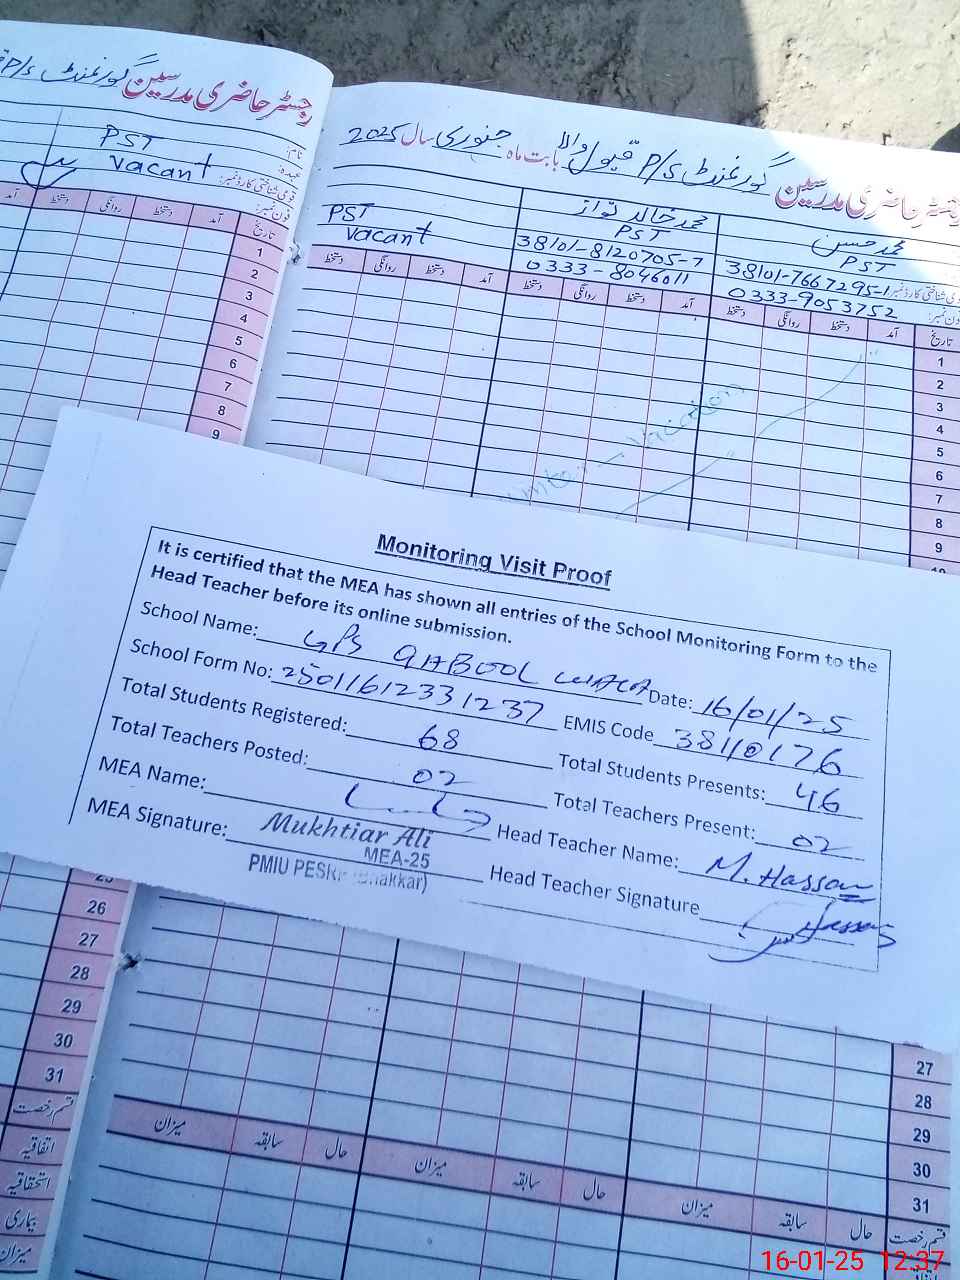 رجسٹر حاضری مدرسین گورنمنٹ P/S
نام:
عہدہ: PST
قومی شناختی کارڈ نمبر: Vacant
فون نمبر:
تاریخ آمد دستخط روانگی دستخط آمد
1
2
3
4
5
6
7
8
9
رجسٹر حاضری مدرسین گورنمنٹ P/S قبول والا بابت ماہ جنوری سال 2025
محمد حسن محمد خالد نواز
PST PST PST
38101-7667295-1 38101-8120705-7 Vacant
قومی شناختی کارڈ نمبر
فون نمبر: 0333-9053752 0333-8046011
تاریخ آمد دستخط روانگی دستخط آمد دستخط روانگی دستخط آمد دستخط روانگی دستخط
1
2
3
4
5
6
7
8
9
10
winter - Vacation
Monitoring Visit Proof
It is certified that the MEA has shown all entries of the School Monitoring Form to the
Head Teacher before its online submission.
School Name: GPS QABOOL WALA Date: 16/01/25
School Form No: 25011612331237 EMIS Code 38110176
Total Students Registered: 68 Total Students Presents: 46
Total Teachers Posted: 02 Total Teachers Present: 02
MEA Name: Head Teacher Name: M. Hassan
MEA Signature: Mukhtiar Ali Head Teacher Signature Hassan
MEA-25
PMIU PESRP (Bhakkar)
25
26
27
28
29
30
31
قسم رخصت
اتفاقیہ
استحقاقیہ
بیماری
میزان
27
28
29
30
31
قسم رخصت حال سابقہ میزان حال سابقہ میزان حال سابقہ میزان
اتفاقیہ
16-01-25 12:37